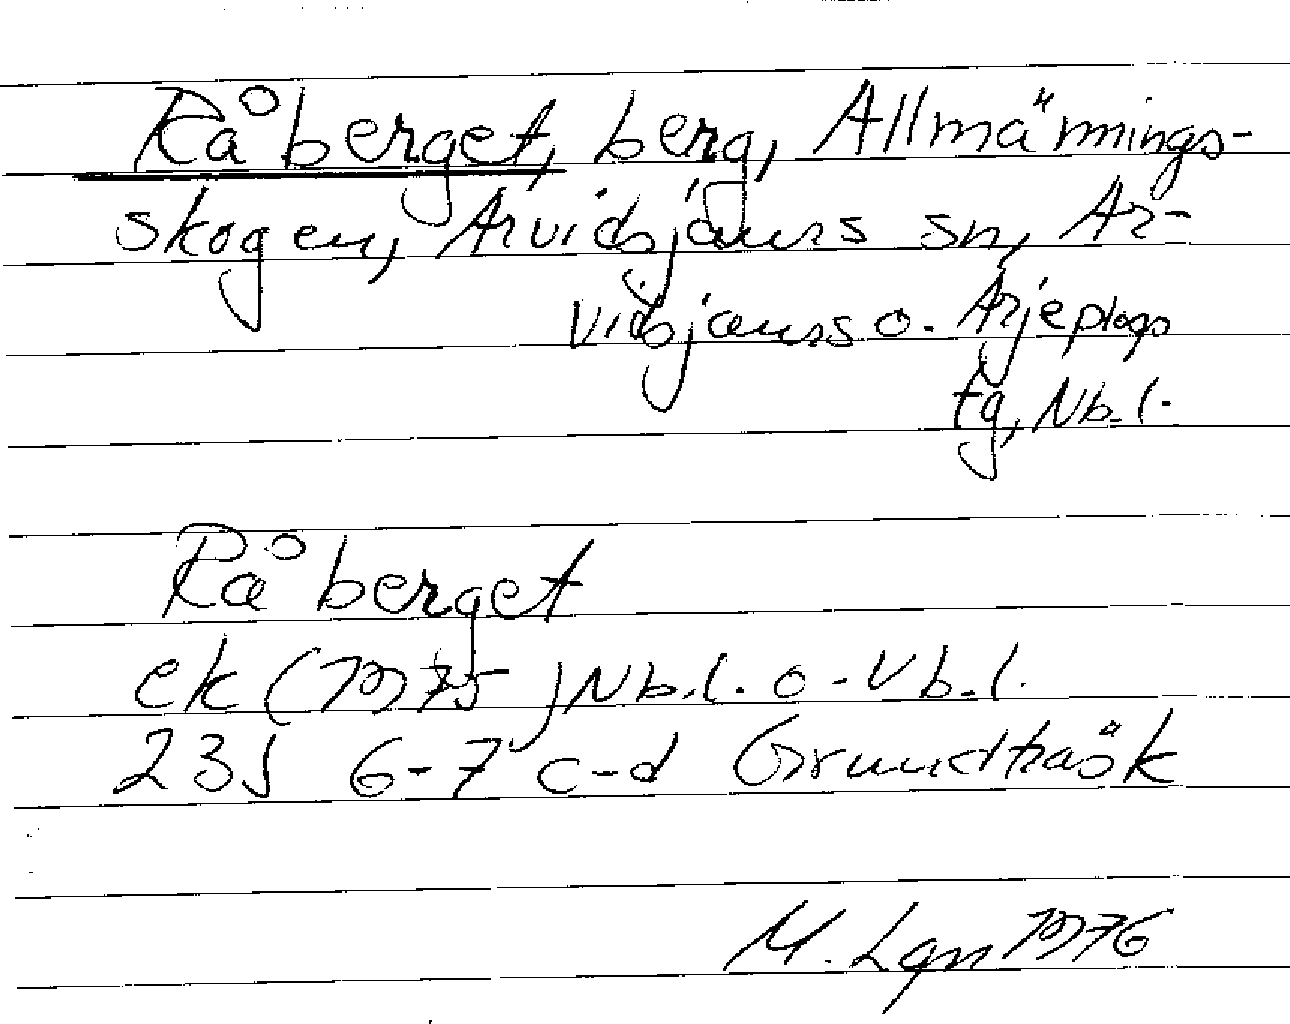 Råberget, berg, Allmännings-
skogen, Arvidsjaurs sn, Ar-
vidsjaurs o. Arjeplogs
tg, Nb. l.
Råberget
ek (1975) Nb. l. o. Vb. l.
23J 6-7 c-d Grundträsk
M. Lgn 1976